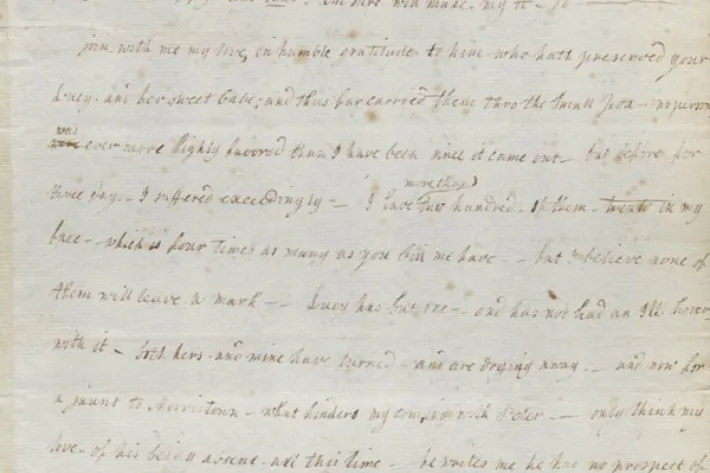 join with me my love, in humble gratitude to him who hath preserved your
Lucy and her sweet babe; and thus far carried them thro the small pox - no person
was
ever more highly favored than I have been since it came out - but before for
more than
three days - I suffered exceedingly - I have two hundred of them - twenty in my
face - which is four times as many as you bid me have - but believe none of
them will leave a mark - Lucy has but one - and has not had an Ill hour
with it - both hers and mine have turned - and are drying away - and now for
a jaunt to Morristown - what hinders my coming with Peter - only think my
love - of his being absent all this time - he writes me he has no prospect of